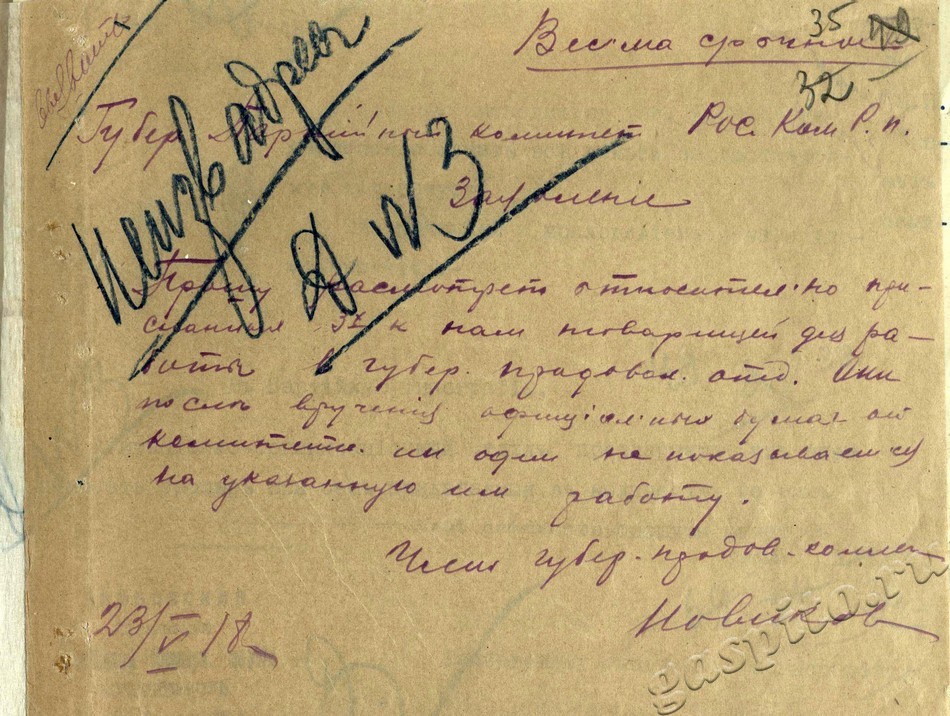 35
Весма срочно
32
Губер. Партийный комитет Рос. Ком. Р. п.
Неизв адрес
Д №3
Заявление
Прошу расмотреть относително при-
слания 3х к нам товарищей для ра-
боты в губер. продовол. отд. Они
после вручения официалных бумаг от
комитета. ни один не показывается
на указанную им работу.
Член губер. продов. коллег
Новиков
23/V 18
gaspito.ru